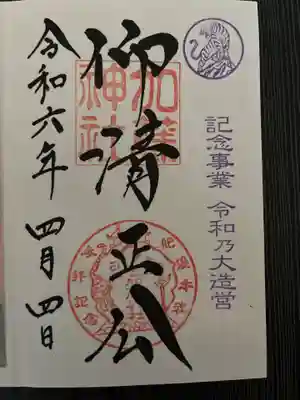 記念事業 令和乃大造営
仰清正公
加藤
神社
令和六年 四月四日